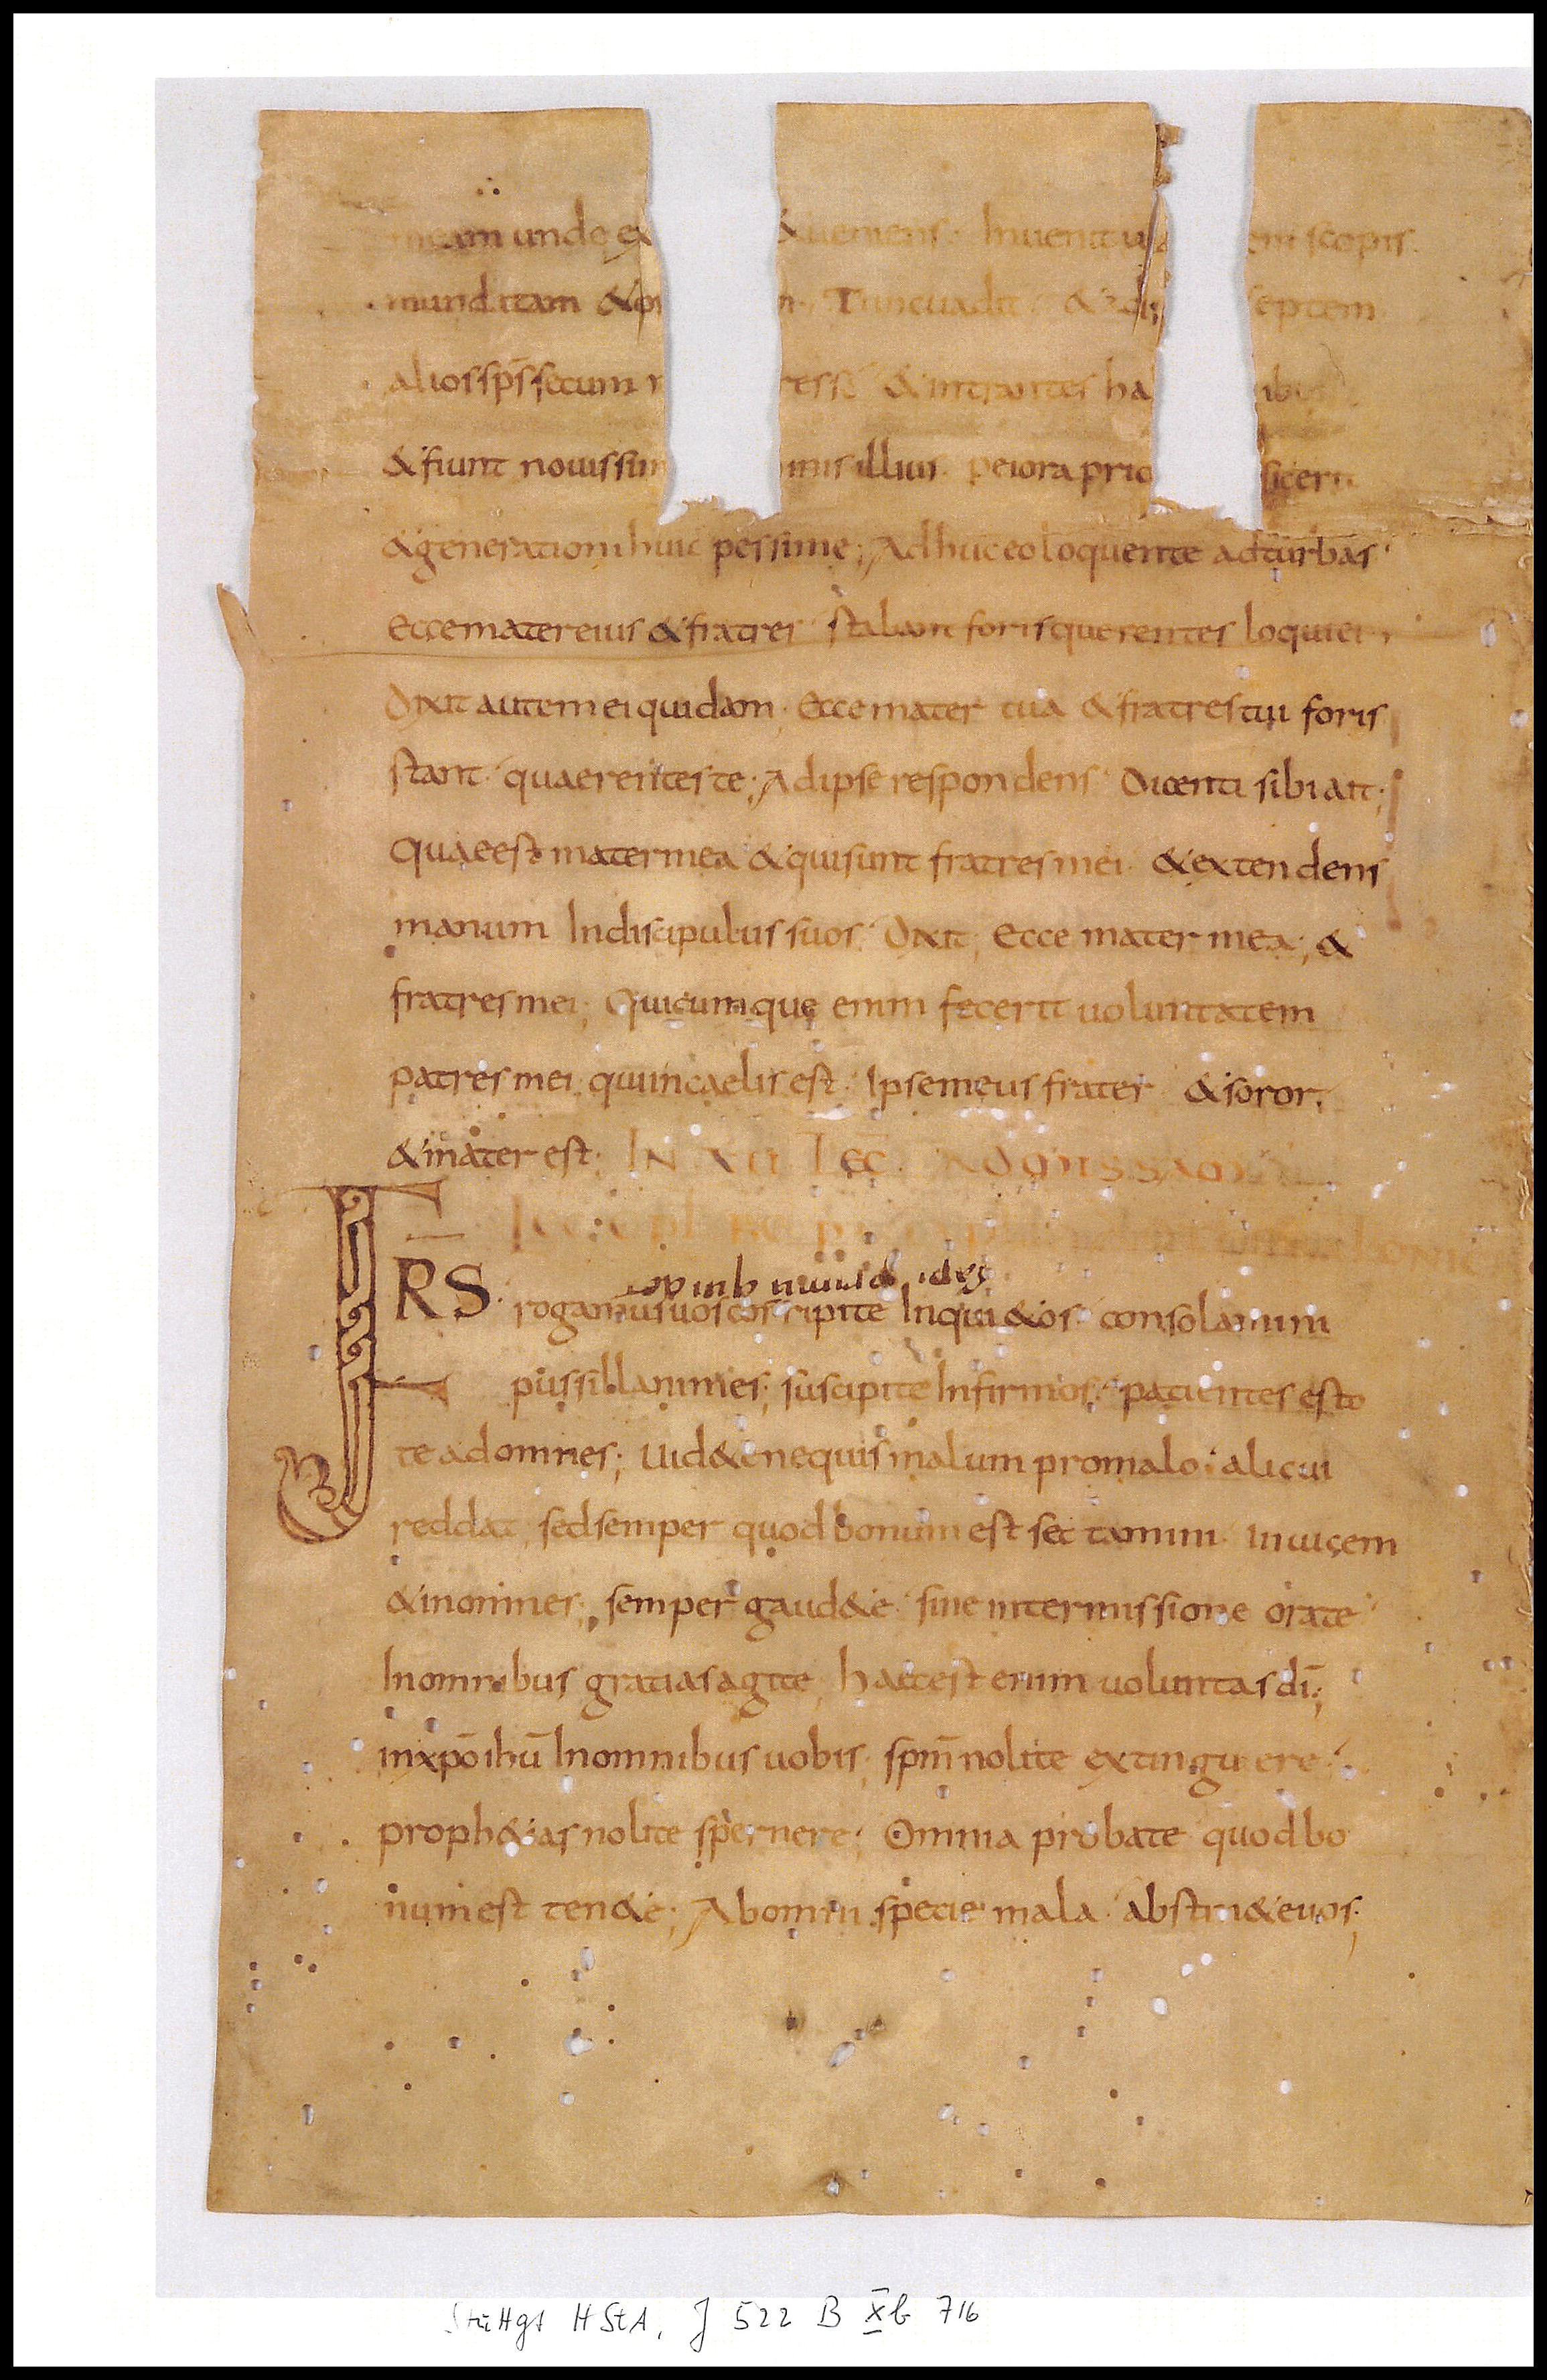 meam unde ex &ueniens. Inuenit u em scopis
munditam &o Tunc uadit &ad septem
alios sp̄s secum &intrantes ha ib
&fiunt nouissim inis illius. peiora prio sic eri
&generationi huic pessime; Adhuc eo loquente ad turbas
Ecce mater eius &fratres stabant foris querentes loqui ei
Dixit autem ei quidam. Ecce mater tua &fratres tui foris
stant quaerentes te; Ad ipse respondens Dicenti sibi ait;
Quae est mater mea &qui sunt fratres mei. &extendens
manum In discipulus suos. Dixit, Ecce mater mea; &
fratres mei; Quicumque enim fecerit uoluntatem
patres mei qui in caelis est. Ipse meus frater &soror,
&mater est. IN XII Lec̄ AD MISSAM
FRS. rogamus uos corripite Inqui&os. consolamini
pussillanimes; suscipite Infirmos. patientes esto
te ad omnes; Uid&e ne quis malum pro malo alicui
reddat, sed semper quod bonum est sectamini Inuicem
&in omnes; semper gaud&e. sine intermissione orate
In omnibus gratias agite, haec est enim uoluntas dī;
in xp̄o ihū In omnibus uobis, spm̄ nolite extinguere
proph&ias nolite spernere; Omnia probate quod bo
num est ten&e; Ab omni specie mala abstin&e uos;
Stuttgt HStA, J 522 B X b 716